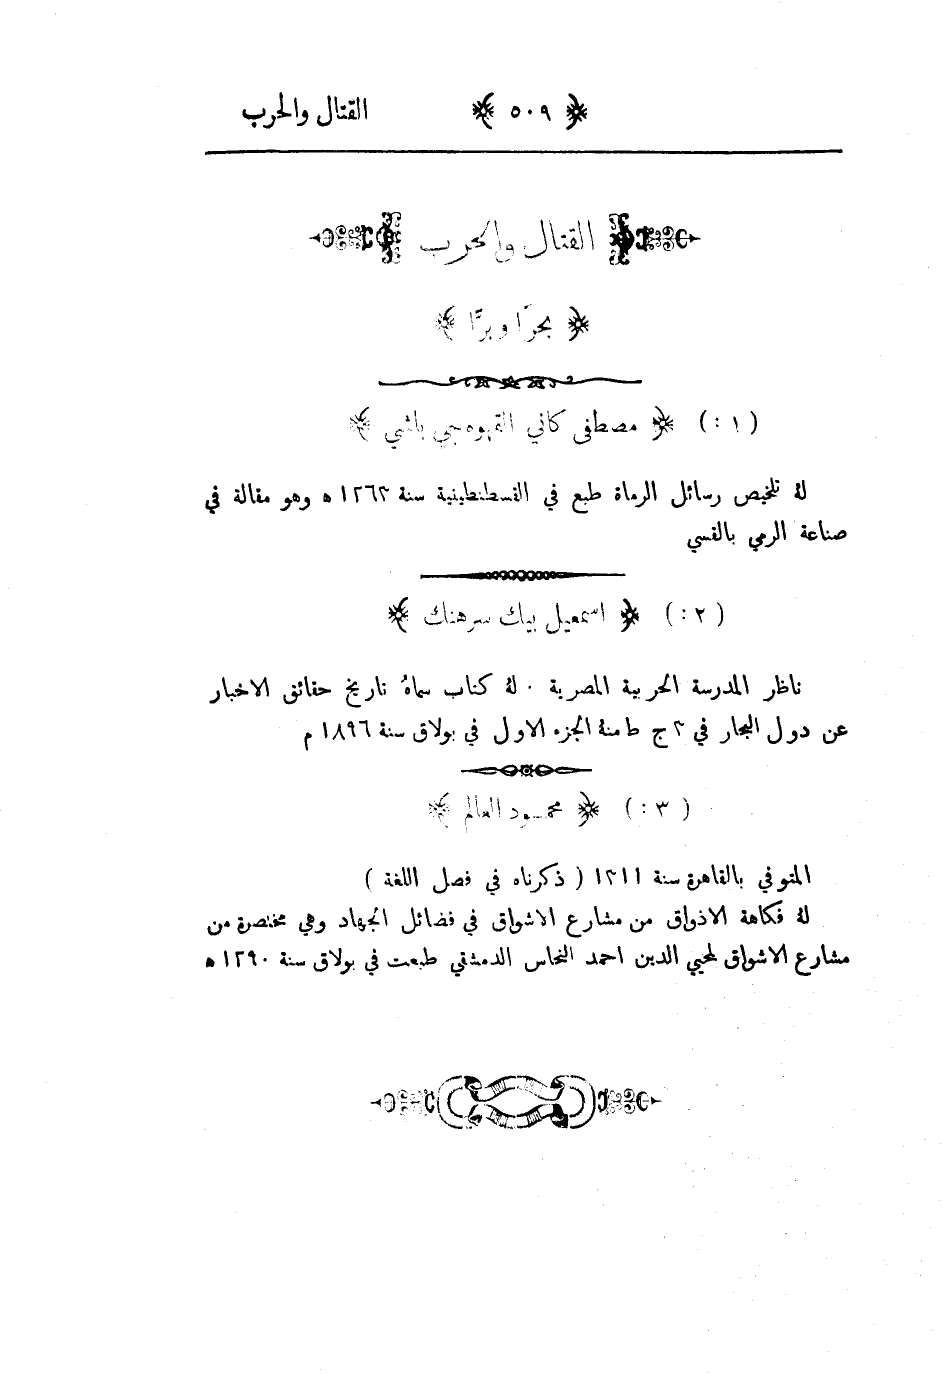 ﴿ ٥٠٩ ﴾ القتال والحرب
القتال والحرب
﴿ بحرًا وبرًّا ﴾
( ١ : ) ﴿ مصطفى كاني القهوه جي باشي ﴾
لهُ تلخيص رسائل الرماة طبع في القسطنطينية سنة ١٢٦٣ ه وهو مقالة في
صناعة الرمي بالقسي
( ٢ : ) ﴿ اسمعيل بيك سرهنك ﴾
ناظر المدرسة الحربية المصرية · لهُ كتاب سماهُ تاريخ حقائق الاخبار
عن دول البحار في ٢ ج طا منهُ الجزء الاول في بولاق سنة ١٨٩٦ م
( ٣ : ) ﴿ محمود العالم ﴾
المتوفي بالقاهرة سنة ١٣١١ ( ذكرناه في فصل اللغة )
لهُ فكاهة الاذواق من مشارع الاشواق في فضائل الجهاد وهي مختصرة من
مشارع الاشواق لمحيي الدين احمد النحاس الدمشقي طبعت في بولاق سنة ١٢٩٠ ه